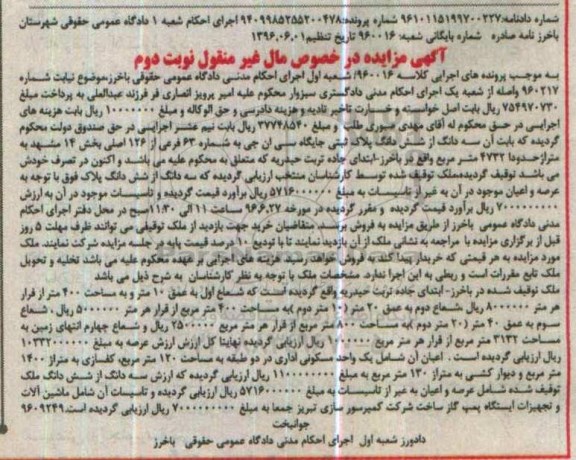 شماره دادنامه:۹۶۱۰۱۱۵۱۹۹۷۰۰۲۲۷ شماره پرونده:۹۴۰۹۹۸۵۲۵۵۲۰۰۴۷۸ اجرای احکام شعبه ۱ دادگاه عمومی حقوقی شهرستان
باخرز نامه صادره شماره بایگانی شعبه: ۹۶۰۰۱۶ تاریخ تنظیم:۱۳۹۶.۰۶.۰۱
آگهی مزایده در خصوص مال غیر منقول نوبت دوم
به موجب پرونده های اجرایی کلاسه ۹۶۰۰۱۶/ شعبه اول اجرای احکام مدنی دادگاه عمومی حقوقی باخرز،موضوع نیابت شماره
۹۶۰۲۱۷ واصله از شعبه یک اجرای احکام مدنی دادگستری سبزوار محکوم علیه امیر پرویز انصاری فر فرزند عبدالعلی به پرداخت مبلغ
۷۵۴۹۷۰۷۳۰ ریال بابت اصل خواسته و خسارت تاخیر تادیه و هزینه دادرسی و حق الوکاله و مبلغ ۱۰۰۰۰۰۰۰ ریال بابت هزینه های
اجرایی در حق محکوم له آقای مهدی صبوری طلب و مبلغ ۳۷۷۴۸۵۴۰ ریال بابت نیم عشر اجرایی در حق صندوق دولت محکوم
گردیده که بابت آن سه دانگ از شش دانگ پلاک ثبتی جایگاه سی ان جی به شماره ۶۳ فرعی از ۱۲۶ اصلی بخش ۱۴ مشهد به
متراژحدودا ۴۷۳۲ متر مربع واقع در باخرز-ابتدای جاده تربت حیدریه که متعلق به محکوم علیه می باشد و اکنون در تصرف خودش
می باشد توقیف گردیدهملک توقیف شده توسط کارشناسان منتخب ارزیابی گردیده که سه دانگ از شش دانگ پلاک فوق با توجه به
عرصه و اعیان موجود در آن به غیر از تاسیسات به مبلغ ۵۷۱۶۰۰۰۰۰۰ ریال برآورد قیمت گردیده و تاسیسات موجود در آن به ارزش
۷۰۰۰۰۰۰۰۰۰ ریال برآورد قیمت گردیده و مقرر گردیده در مورخه ۹۶.۶.۲۷ ساعت ۱۱ الی ۱۱.۳۰صبح در محل دفتر اجرای احکام
مدنی دادگاه عمومی باخرز از طریق مزایده به فروش برسد. متقاضیان خرید جهت بازدید از ملک توقیفی می توانند ظرف مهلت ۵ روز
قبل از برگزاری مزایده با مراجعه به نشانی ملک از آن بازدید نمایند تا با تودیع ۱۰ درصد قیمت پایه در جلسه مزایده شرکت نمایند. ملک
مورد مزایده به هر قیمتی که خریدار پیدا کند به فروش خواهد رسید هزینه های اجرایی بر عهده محکوم علیه می باشد تخلیه و تحویل
ملک تابع مقررات است و ربطی به این اجرا ندارد. مشخصات ملک با توجه به نظر کارشناسان به شرح ذیل می باشد
ملک توقیف شده در باخرز- ابتدای جاده تربت حیدریه واقع گردیده است که شعاع اول به عمق ۱۰ متر و به مساحت ۴۰۰ متر از قرار
هر متر ۸۰۰۰۰۰۰ ریال ،شعاع دوم به عمق ۲۰ متر (۱۰ متر دوم )به مساحت ۴۰۰ متر مربع از قرار هر متر ۵۰۰۰۰۰۰ ریال ، شعاع
سوم به عمق ۴۰ متر (۲۰ متر دوم )به مساحت ۸۰۰ متر مربع از قرار هر متر مربع ۲۵۰۰۰۰۰ ریال و شعاع چهارم انتهای زمین به
مساحت ۳۱۳۲ متر مربع از قرار هر متر مربع ۱۰۰۰۰۰۰ ریال ارزیابی گردیده نهایتا کل ارزش ارزش عرصه به مبلغ ۱۰۳۳۲۰۰۰۰۰۰
ریال ارزیابی گردیده است . اعیان آن شامل یک واحد سکونی اداری در دو طبقه به مساحت ۱۲۰ متر مربع، کفسازی به متراژ ۱۴۰۰
متر مربع و دیوار کشی به متراژ ۱۳۰ متر مربع به مبلغ ۱۱۰۰۰۰۰۰۰۰ ریال ارزیابی گردیده که ارزش سه دانگ از شش دانگ ملک
توقیف شده شامل عرصه و اعیان به غیر از تاسیسات به مبلغ ۵۷۱۶۰۰۰۰۰۰ ریال ارزیابی گردیده و تاسیسات آن شامل ماشین آلات
و تجهیزات ایستگاه پمپ گاز ساخت شرکت کمپرسور سازی تبریز جمعا به مبلغ ۷۰۰۰۰۰۰۰۰۰ ریال ارزیابی گردیده است.۹۶۰۹۲۴۹
جوانبخت
دادورز شعبه اول اجرای احکام مدنی دادگاه عمومی حقوقی باخرز